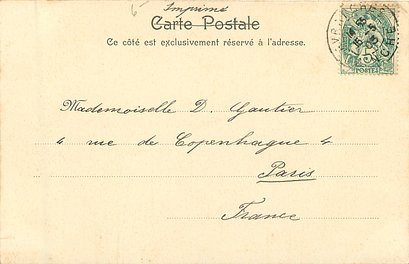 6-
Imprimé
Carte Postale
Ce côté est exclusivement réservé à l'adresse.
POSTES
Mademoiselle D. Gautier
4 rue de Copenhague 4
Paris
France